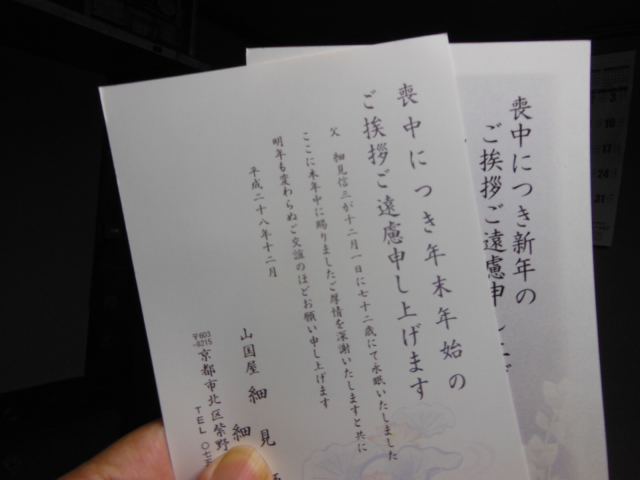 喪中につき年末年始の
ご挨拶ご遠慮申し上げます
父 細見信三が十二月一日に七十二歳にて永眠いたしました
ここに本年中に賜りましたご厚情を深謝いたしますと共に
明年も変わらぬご交誼のほどお願い申し上げます
平成二十八年十二月
山国屋 細見
細
〒603
-8215
京都市北区紫野
TEL 〇七五
喪中につき新年の
ご挨拶ご遠慮申し上げ
3
10
17
24
31